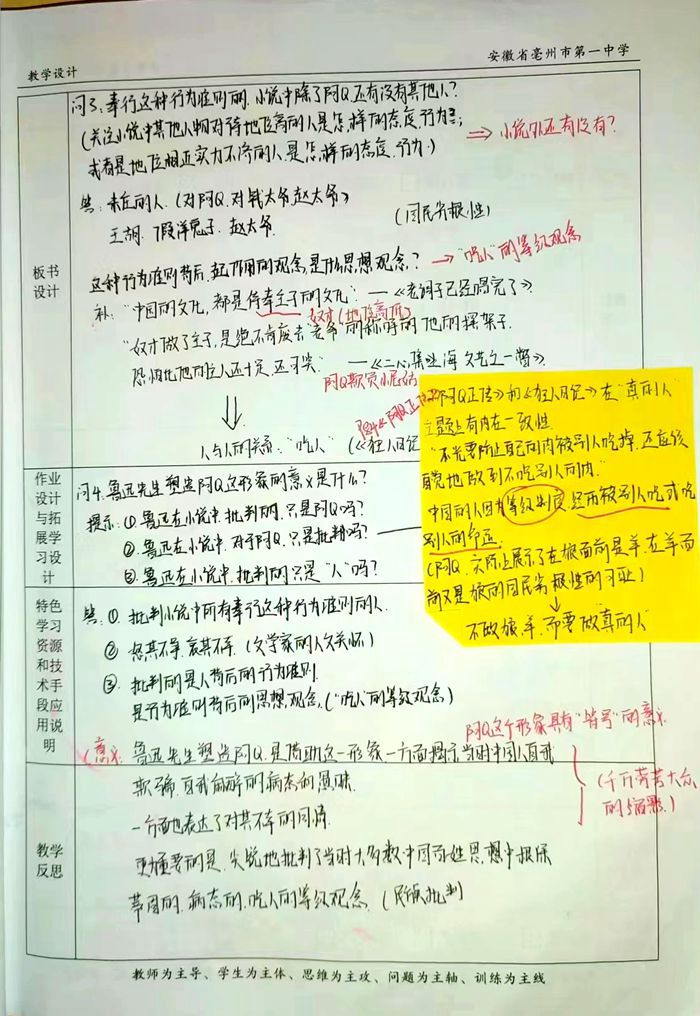 教学设计
安徽省亳州市第一中学
问3：奉行这种行为准则的，小说中除了阿Q，还有没有其他人？
(关注小说中其他人物对待地位高的人是怎样的态度、行为；
⇒ 小说外还有没有？
或者是地位相近实力不济的人是怎样的态度、行为。)
答：未庄的人（对阿Q、对钱太爷、赵太爷）
王胡、假洋鬼子、赵太爷
(国民劣根性)
这种行为准则背后，起作用的观念，是什么思想观念？
→ "吃人"的等级观念
板书
设计
补："中国的文化，都是侍奉主子的文化" —《老调子已经唱完了》
奴才（地位高所）
"奴才做了主子，是绝不肯废去"老爷"的称呼的，他的摆架子，
恐怕比他的主人还十足，还可笑。" —《二心集·上海文艺之一瞥》
阿Q欺负小尼姑
人与人的关系："吃人" (《狂人日记
《阿Q正传》和《狂人日记》在"真的人"
主题上有内在一致性
"不光要防止自己的肉被别人吃掉，还应该
自觉地做到不吃别人的肉"
中国的人因为等级制度，是而被别人吃或吃
别人的命运
(阿Q，实际上展示了在狼面前是羊，在羊面
前又是狼的国民劣根性的习性)
不做狼、羊，而要做真的人
作业
设计
与拓
展学
习设
计
问4：鲁迅先生塑造阿Q这形象的意义是什么？
提示：①鲁迅在小说中，批判的，只是阿Q吗？
②鲁迅在小说中，对于阿Q，只是批判吗？
③鲁迅在小说中，批判的只是"人"吗？
特色
学习
资源
和技
术手
段应
用说
明
答：① 批判小说中所有奉行这种行为准则的人
② 怒其不争，哀其不幸（文学家的人文关怀）
③ 批判的是人背后的行为准则
是行为准则背后的思想观念，("吃人"的等级观念)
阿Q这个形象具有"符号"的意义
(意义：鲁迅先生塑造阿Q，是借助这一形象，一方面揭示当时中国人自我
欺骗、自我麻醉的病态和愚昧
(千万劳苦大众
的缩影)
一方面也表达了对其不幸的同情
教学
反思
更重要的是，尖锐地批判了当时大多数中国百姓思想中根深
蒂固的，病态的，吃人的等级观念（民族批判）
教师为主导、学生为主体、思维为主攻、问题为主轴、训练为主线